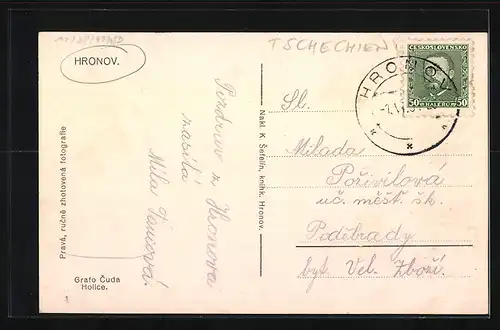 TSCHECHIEN
HRONOV.
ČESKOSLOVENSKO
50 HALÉŘŮ 50
HRONOV
Pozdrav z Hronova
zasílá
Míla
Sl.
Milada
Pořivilová
uč. měšť. šk.
Poděbrady
byt. Vel. Zboží.
Nakl. K. Šefelín, knihk. Hronov.
Pravá, ručně zhotovená fotografie
Grafo Čuda
Holice.